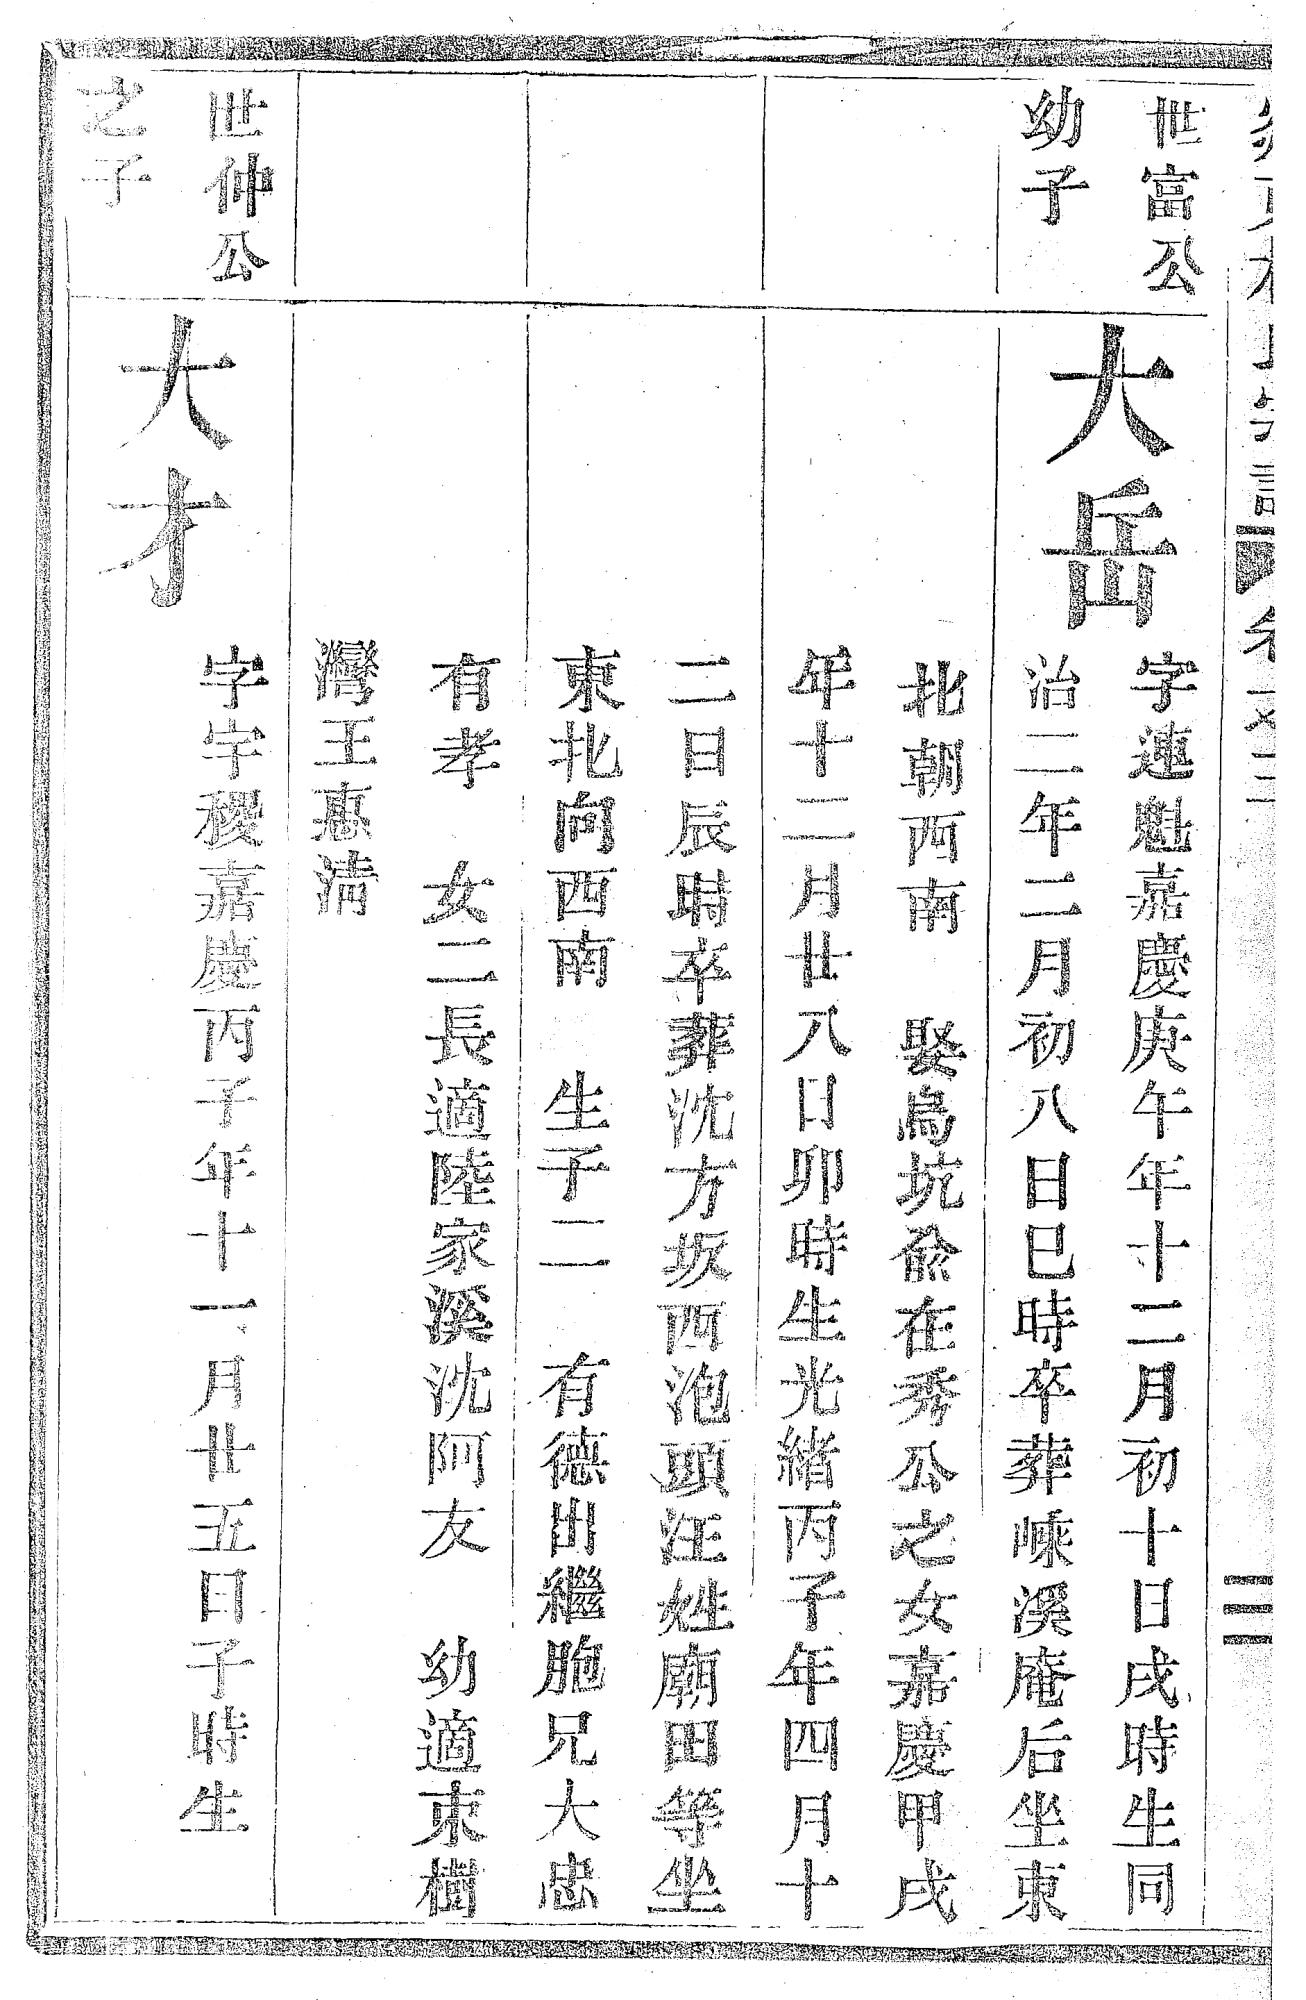 世富公
幼子
大岳
字連魁嘉慶庚午年十二月初十日戌時生同
治二年二月初八日巳時卒葬崍溪庵后坐東
北朝西南 娶烏坑兪在秀公之女嘉慶甲戌
年十二月廿八日卯時生光緒丙子年四月十
二日辰時卒葬沈方坂西泡頭汪姓廟田等坐
東北向西南 生子二 有德出繼胞兄大忠
有孝 女二長適陸家溪沈阿友 幼適東樹
灣王惠清
世仲公
之子
大才
字宇稷嘉慶丙子年十一月廿五日子時生